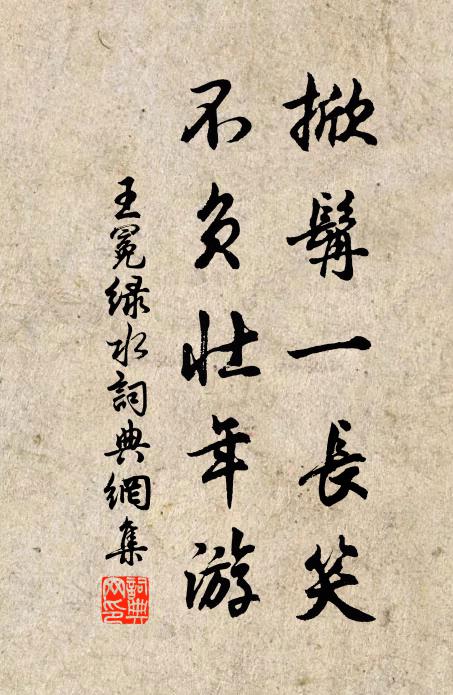 掀髯一長笑
不負壯年游
王冕绿水詞典網集
詞典網印